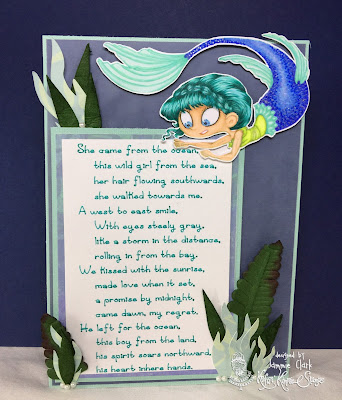 She came from the ocean,
this wild girl from the sea,
her hair flowing southwards,
she walked towards me.
A west to east smile,
With eyes steely gray,
like a storm in the distance,
rolling in from the bay.
We kissed with the sunrise,
made love when it set,
a promise by midnight,
came dawn, my regret.
He left for the ocean,
this boy from the land,
his spirit soars northward,
his heart inhere hands.
designed by
Jammie Clark